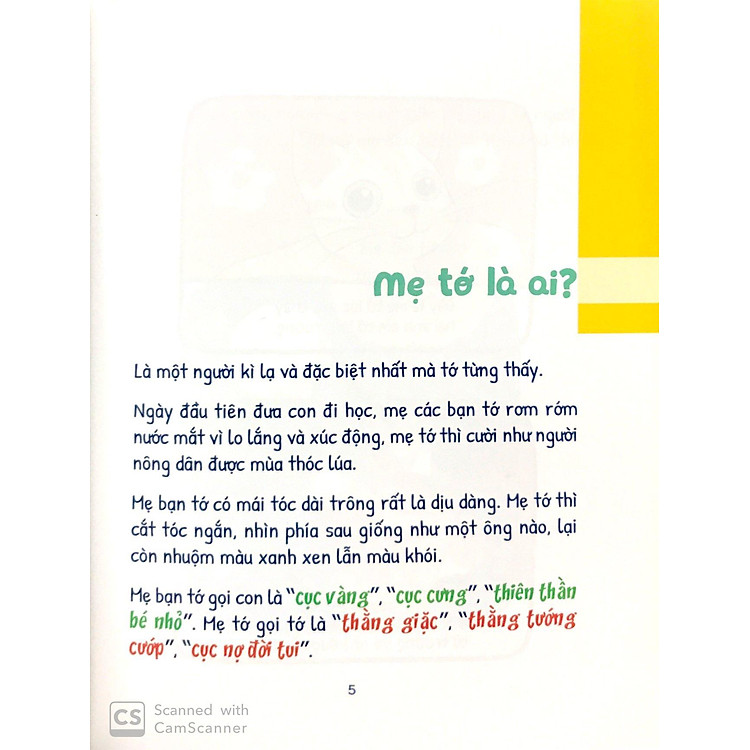 Mẹ tớ là ai?
Là một người kì lạ và đặc biệt nhất mà tớ từng thấy.
Ngày đầu tiên đưa con đi học, mẹ các bạn tớ rơm rớm
nước mắt vì lo lắng và xúc động, mẹ tớ thì cười như người
nông dân được mùa thóc lúa.
Mẹ bạn tớ có mái tóc dài trông rất là dịu dàng. Mẹ tớ thì
cắt tóc ngắn, nhìn phía sau giống như một ông nào, lại
còn nhuộm màu xanh xen lẫn màu khói.
Mẹ bạn tớ gọi con là “cục vàng”, “cục cưng”, “thiên thần
bé nhỏ”. Mẹ tớ gọi tớ là “thằng giặc”, “thằng tướng
cướp”, “cục nợ đời tui”.
5
CS Scanned with
CamScanner